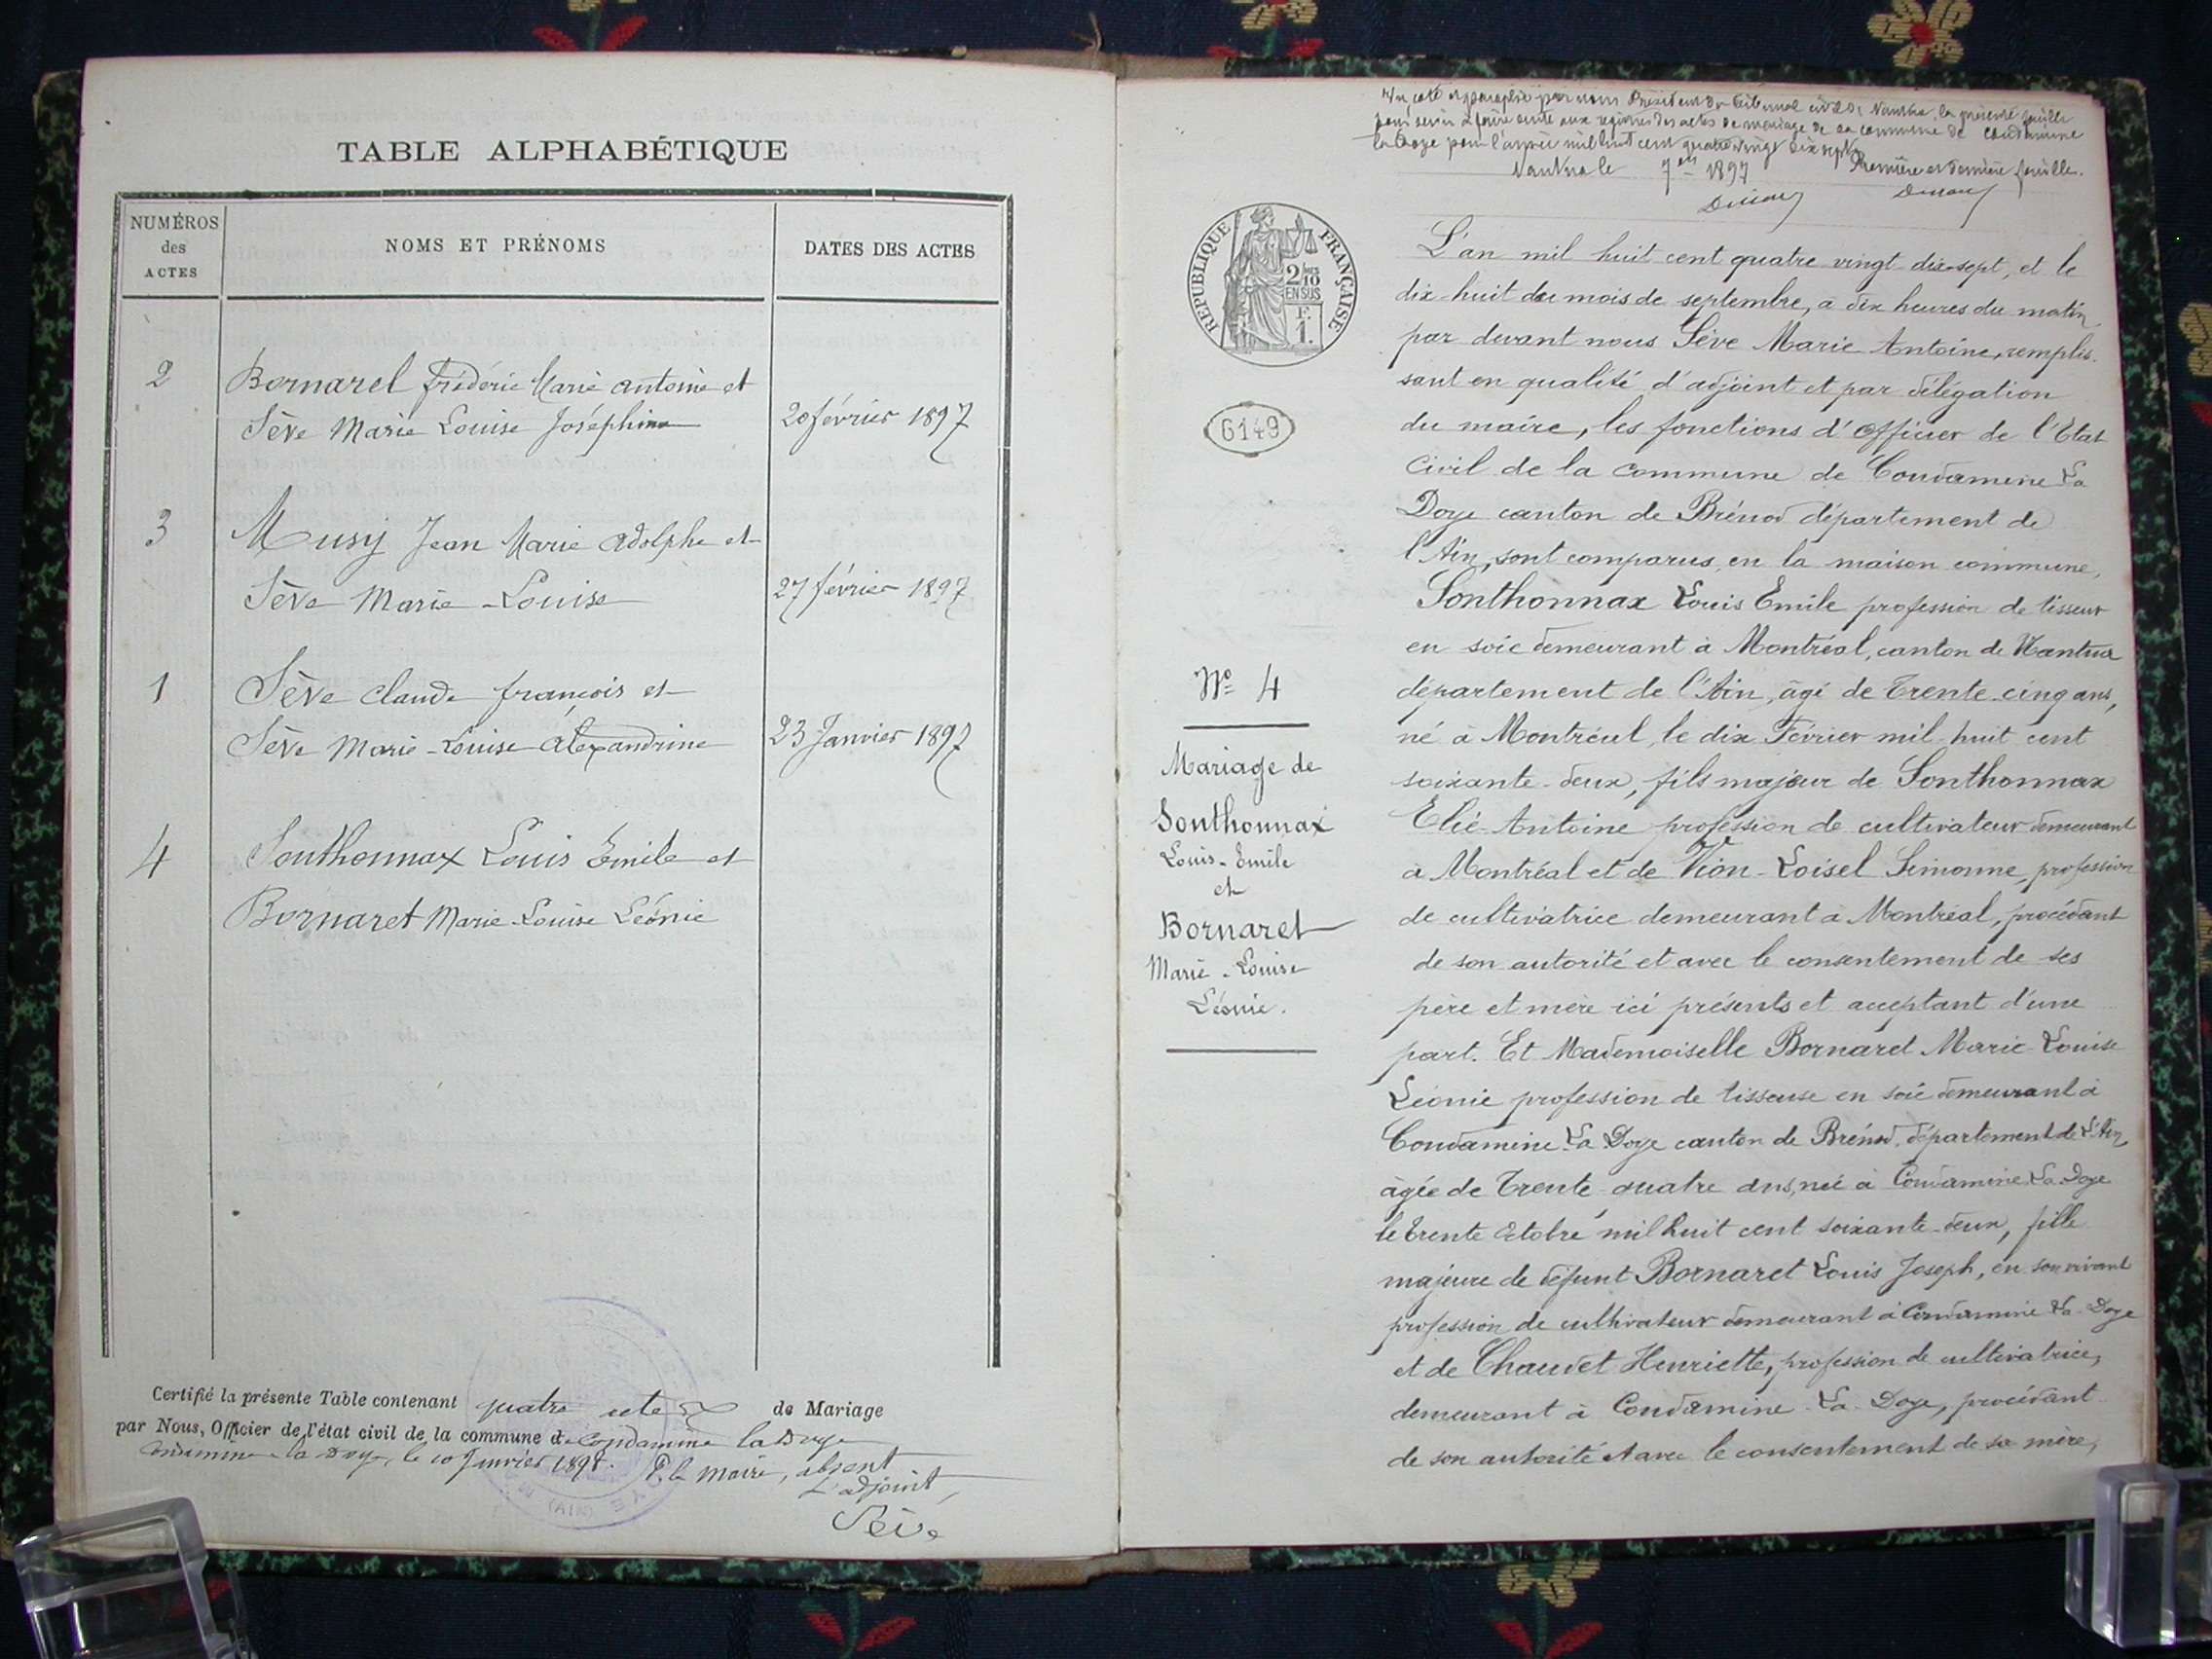 TABLE ALPHABÉTIQUE
NUMÉROS
des
ACTES
NOMS ET PRÉNOMS
DATES DES ACTES
2 Bornarel Frédéric Marie Antoine et
Sève Marie Louise Joséphine 20 février 1897
3 Musy Jean Marie Adolphe et
Sève Marie-Louise 27 février 1897
1 Sève Claude françois et
Sève Marie-Louise Alexandrine 23 Janvier 1897
4 Sonthonnax Louis Emile et
Bornaret Marie-Louise Léonie
Certifié la présente Table contenant quatre actes de Mariage
par Nous, Officier de l'état civil de la commune de Condamine la Doye
la Doye, le 10 Janvier 1898. P. le Maire, absent
L'adjoint,
Sève
Vu, coté et paraphé par nous Président du Tribunal civil de Nantua, la présente feuille
pour servir à faire suite aux registres des actes de mariage de la commune de Condamine
la Doye pour l'année mil huit cent quatre vingt dix sept
Nantua le 7bre 1897 Première et dernière feuille.
RÉPUBLIQUE FRANÇAISE
2/10
EN SUS
F.
1.
6149
L'an mil huit cent quatre vingt dix-sept, et le
dix-huit du mois de septembre, à dix heures du matin
par devant nous Sève Marie Antoine, remplis-
sant en qualité d'adjoint et par délégation
du maire, les fonctions d'Officier de l'Etat
Civil de la commune de Condamine La
Doye canton de Brénod département de
l'Ain, sont comparus, en la maison commune,
Sonthonnax Louis Emile profession de tisseur
en soie demeurant à Montréal, canton de Nantua
département de l'Ain, âgé de Trente-cinq ans,
né à Montréal, le dix Février mil huit cent
soixante-deux, fils majeur de Sonthonnax
Elié-Antoine profession de cultivateur demeurant
à Montréal et de Vion-Loisel Simonne, profession
de cultivatrice demeurant à Montréal, procédant
de son autorité et avec le consentement de ses
père et mère ici présents et acceptant d'une
part. Et Mademoiselle Bornaret Marie-Louise
Léonie profession de tisseuse en soie demeurant à
Condamine La Doye canton de Brénod, département de l'Ain,
âgée de Trente-quatre ans, née à Condamine La Doye
le trente Octobre mil huit cent soixante-deux, fille
majeure de défunt Bornaret Louis Joseph, en son vivant
profession de cultivateur demeurant à Condamine La Doye
et de Chaudet Henriette, profession de cultivatrice,
demeurant à Condamine La Doye, procédant
de son autorité et avec le consentement de sa mère,
No 4
Mariage de
Sonthonnax
Louis-Emile
et
Bornaret
Marie-Louise
Léonie.